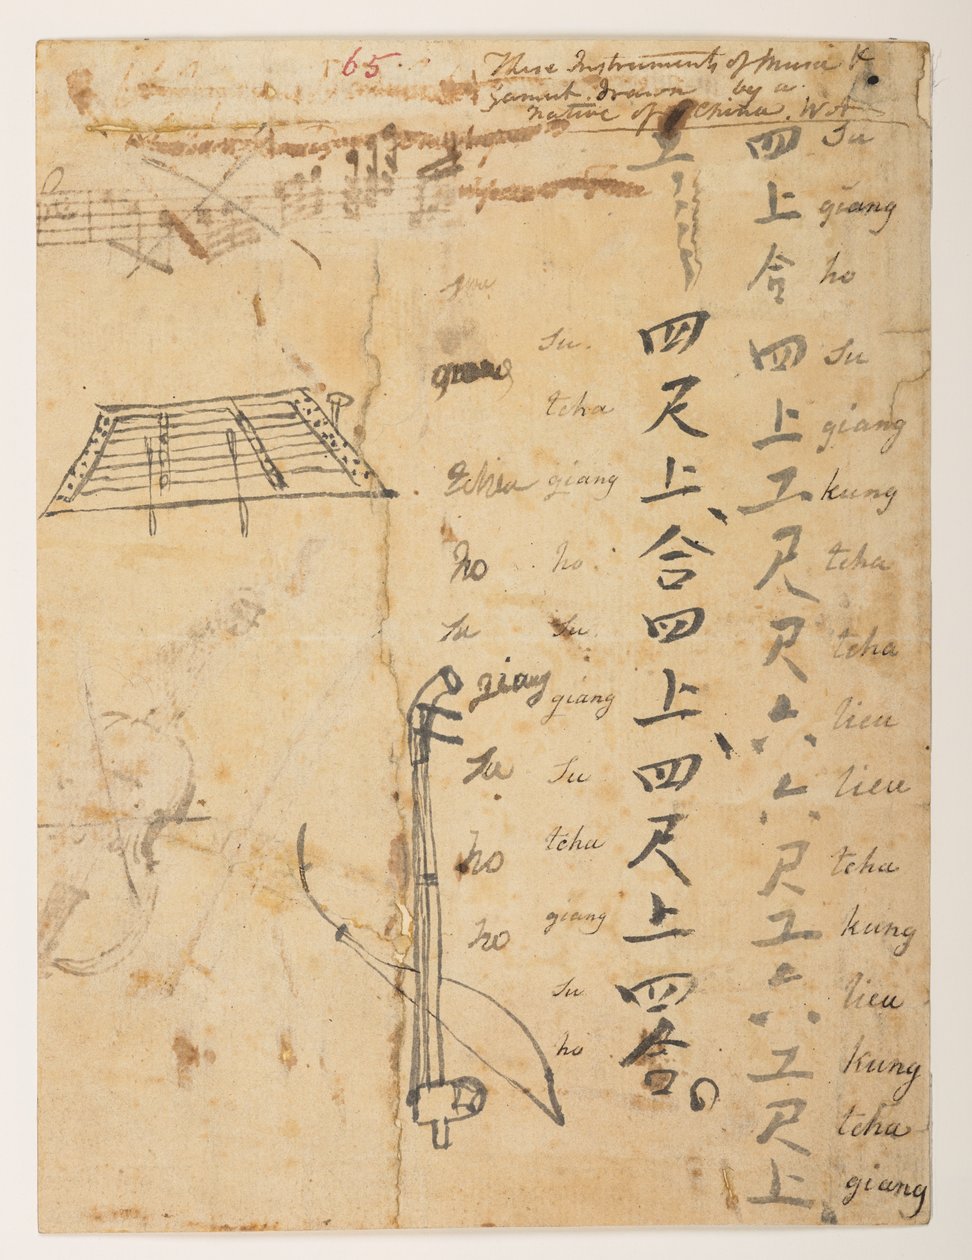 65.
These Instruments of Music &
Gamut drawn by a
native of China. WA
四 su
上 giang
合 ho
四 su
上 giang
工 kung
尺 tcha
尺 tcha
六 lieu
六 lieu
尺 tcha
工 kung
六 lieu
工 kung
尺 tcha
上 giang
四 su.
尺 tcha
上、 giang
合 ho
四 su.
上、 giang
四 su
尺 tcha
上 giang
四 su
合 ho
giang
tcha
ho
su
giang
su
ho
ho